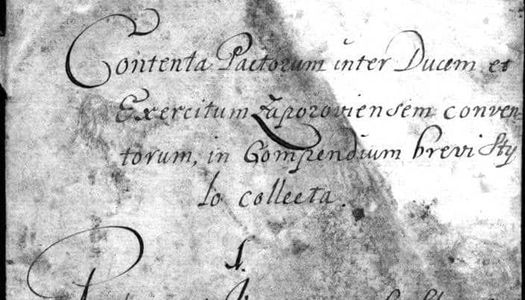 Contenta Pactorum inter Ducem et
Exercitum Zaporoviensem conven
torum, in Compendium brevi Sty
lo collecta.
1.